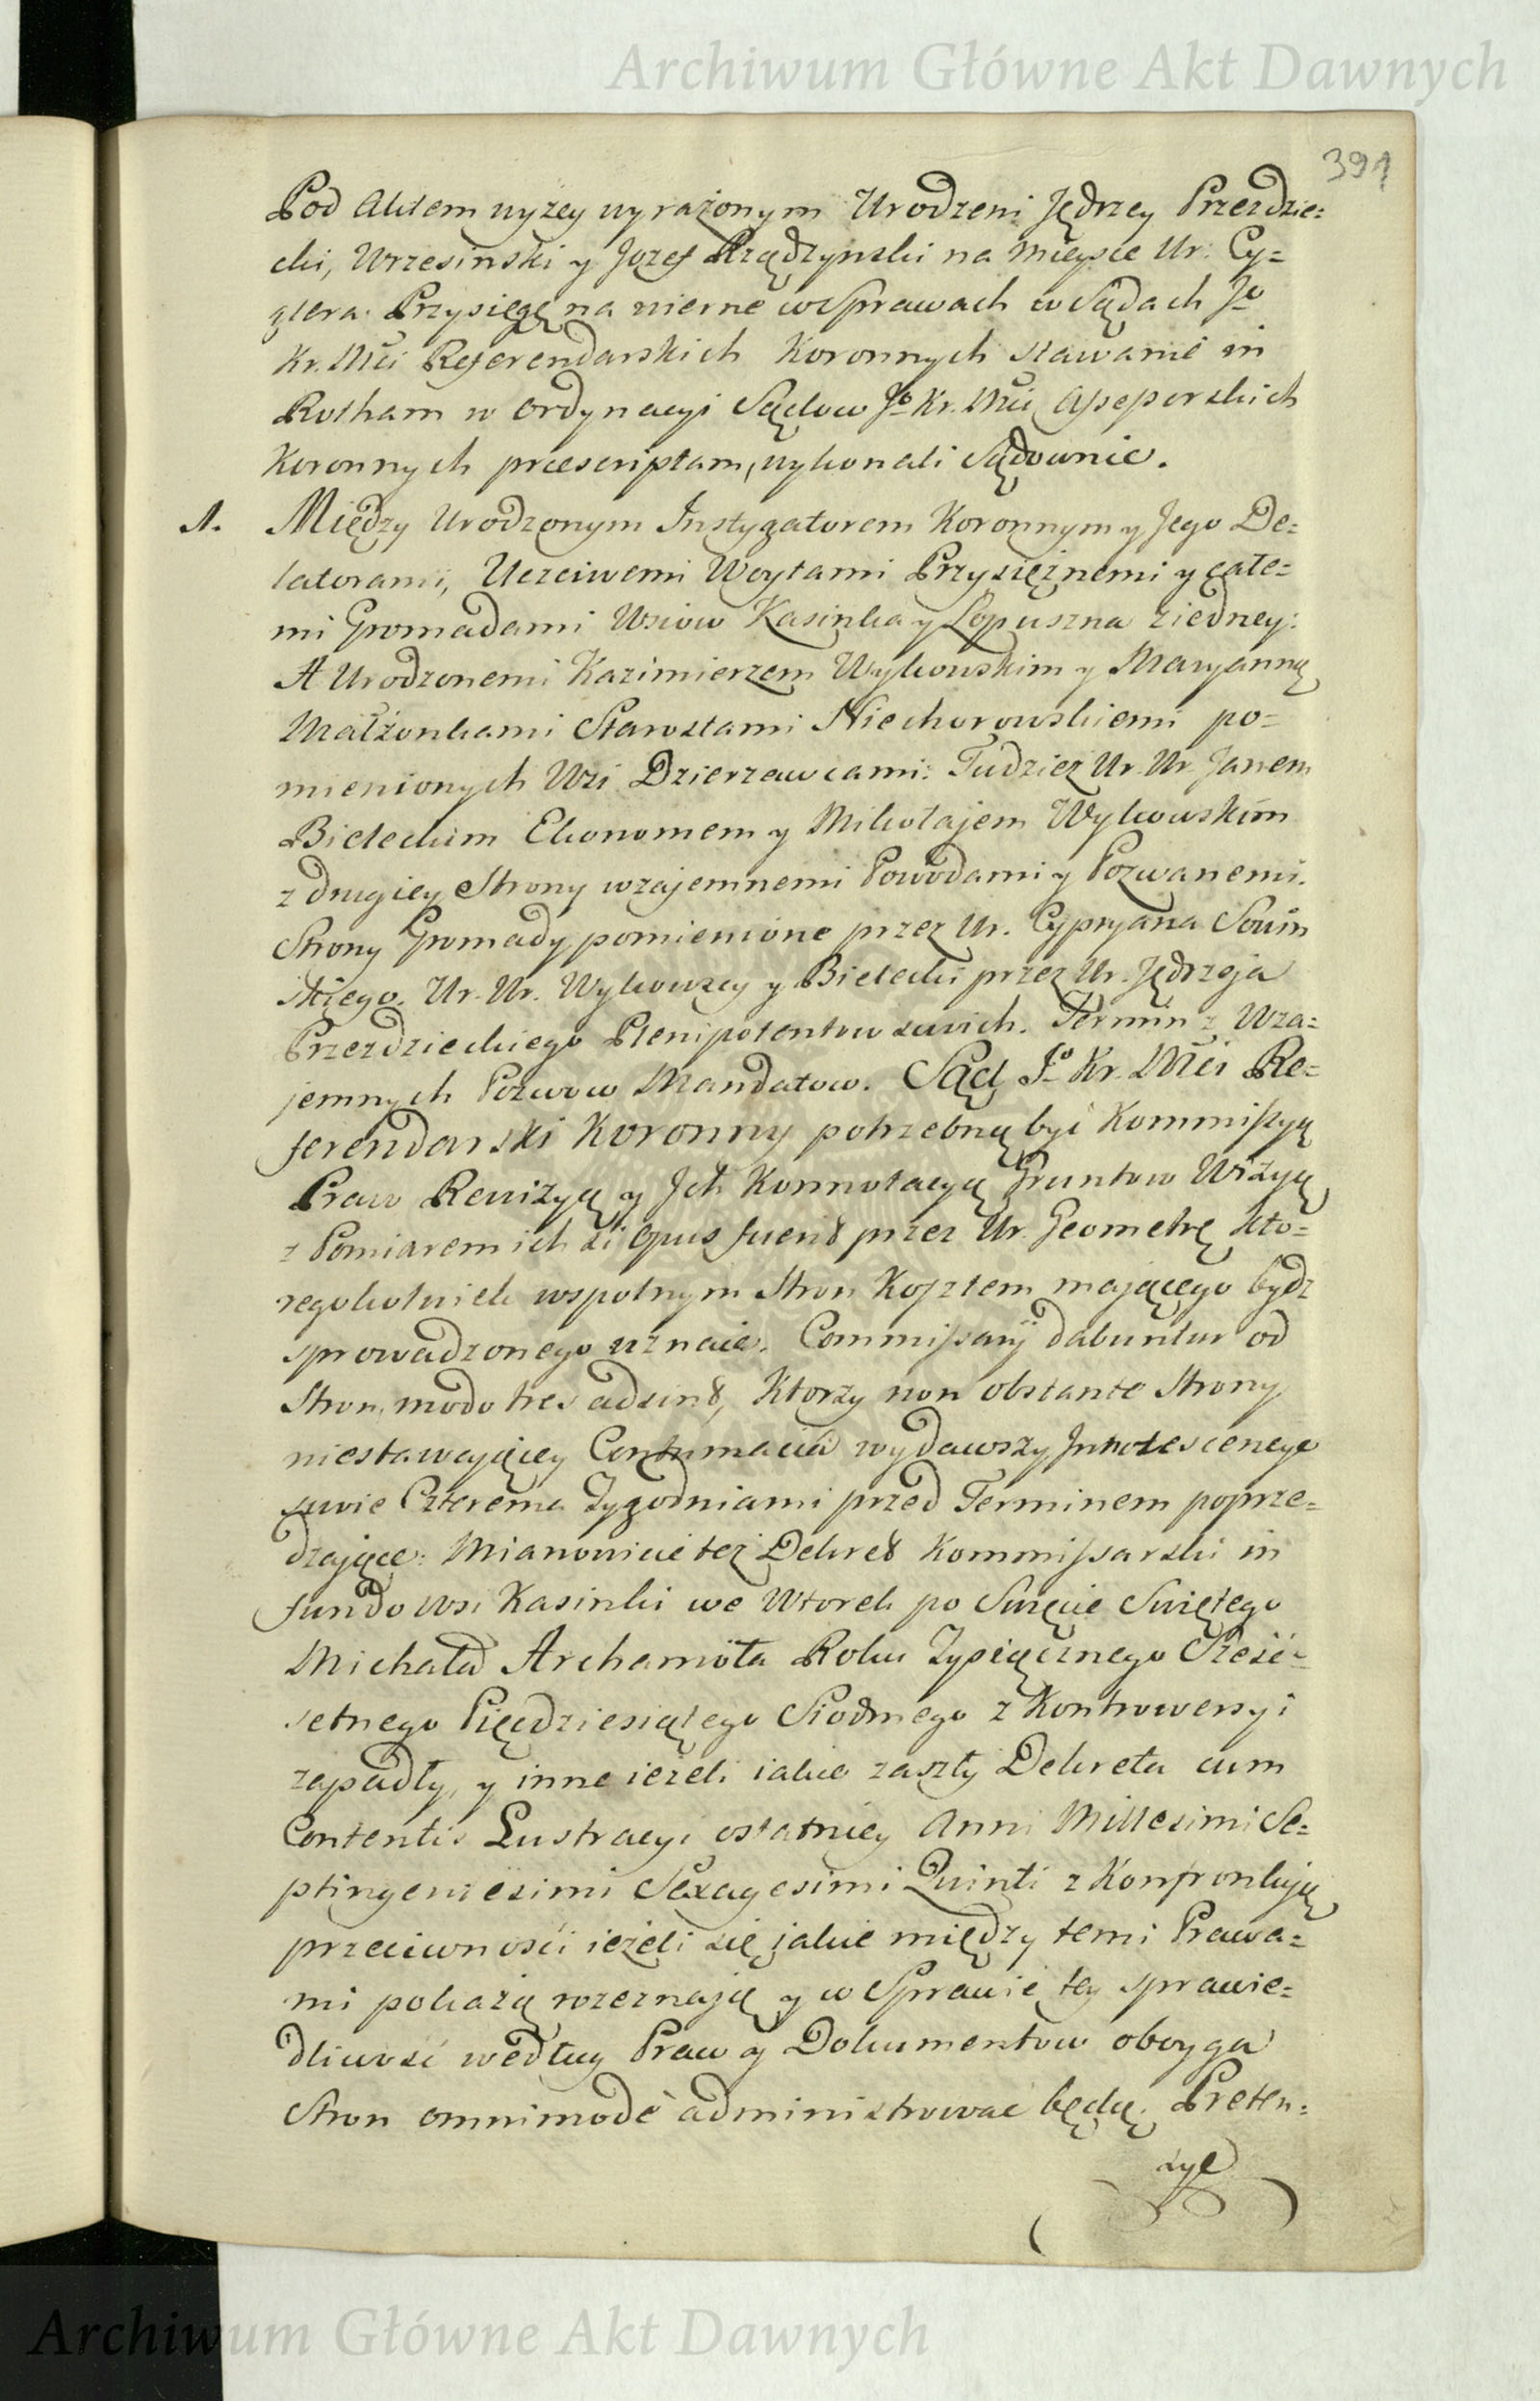 Archiwum Główne Akt Dawnych
391
Pod Aktem wyzey wyrażonym Urodzeni Jędrzey Przezdzie=
cki, Wrzesinski y Jozef Rządzynski na mieysce Ur: Cy=
glera. Przysięgę na wierne w Sprawach w Sądach Jo
Kr. Mći Referendarskich Koronnych stawanie in
Rotham w Ordynacyi Sądow Jo Kr. Mći Assessorskich
Koronnych præscriptam, wykonali Sądownie.
1. Między Urodzonym Instygatorem Koronnym y Jego De=
latorami, Uczciwemi Woytami Przysięznemi y całe=
mi Gromadami Wsiow Kasinka y Lopuszna z iedney:
A Urodzonemi Kazimierzem Wykowskim y Maryanną
Małżonkami Starostami Niechorowskiemi po=
mienionych Wsi Dzierzawcami: Tudziez Ur. Ur. Janem
Bieleckim Ekonomem y Mikołajem Wykowskim
z drugiey Strony wzajemnemi Powodami y Pozwanemi.
Strony Gromady pomienione przez Ur. Cypryana Sowin
skiego. Ur. Ur. Wykowscy y Bielecki przez Ur. Jędrzeja
Przezdzieckiego Plenipotentow swich. Termin z Wza=
jemnych Pozwow Mandatow. Sąd Jo Kr. Mći Re=
ferendarski Koronny potrzebną być Kommissyą
Praw Rewizyą y Jch Konnotacyą Gruntow Wizyą
z Pomiarem ich si opus fuerit przez Ur. Geometrę kto=
regokolwiek wspolnym Stron Kosztem mającego bydz
sprowadzonego uznaie. Commissarij dabuntur od
Stron, modo tres adsint, Ktorzy non obstante Strony
niestawającey Contumacia wydawszy Innotescencye
swoie Czterema Tygodniami przed Terminem poprze=
dzające: Mianowicie tez Dekret Kommissarski in
fundo Wsi Kasinki we Wtorek po Swięcie Swiętego
Michała Archanioła Roku Tysiącznego Sześć=
setnego Pięćdziesiątego Siodmego z Kontrowersyi
zapadły, y inne iezeli iakie zaszły Dekreta cum
Contentis Lustracyi ostatniey Anni Millesimi Se=
ptingentesimi Sexagesimi Quinti z Konfrontują
przeciwności iezeli się jakie między temi Prawa=
mi pokażą rozeznają y w Sprawie tey sprawie=
dliwość według Praw y Dokumentow oboyga
Stron omnimodè administrować będą. Preten=
sye
Archiwum Główne Akt Dawnych